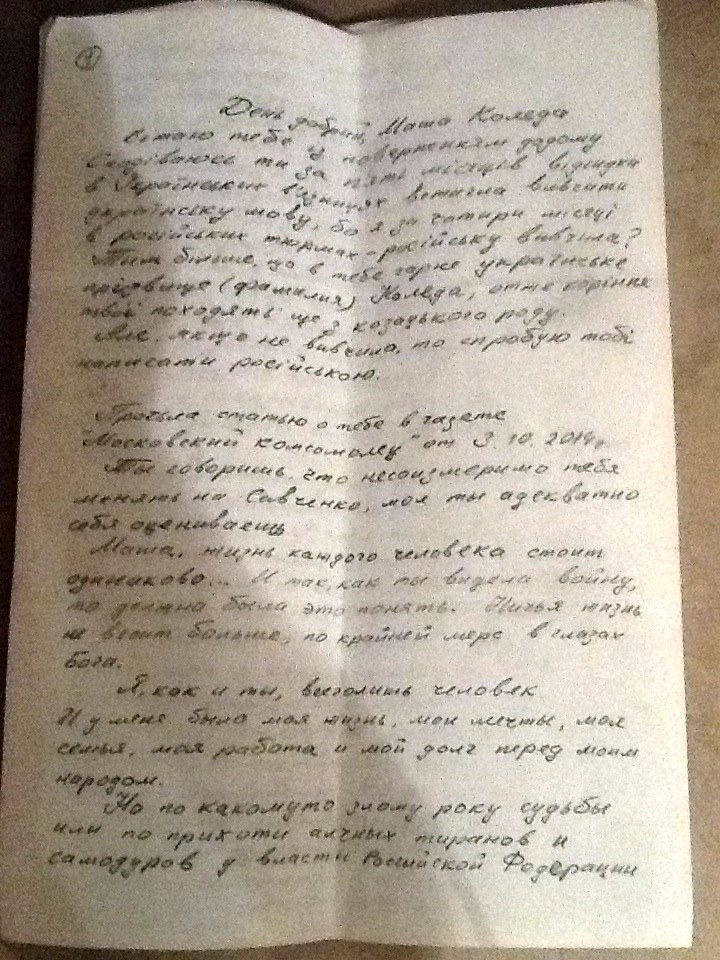 1
День добрий, Маша Коледа
Вітаю тебе із поверненням додому
Сподіваюсь ти за п'ять місяців відсидки
в Українських в'язницях встигла вивчити
українську мову, бо я за чотири місяці
в російських тюрмах – російську вивчила?
Тим більше, що в тебе гарне українське
прізвище (фамилия) Коледа, отже коріння
твої походять ще з козацького роду.
Але, якщо не вивчила, то спробую тобі
написати російською.
Прочла статью о тебе в газете
"Московский комсомолец" от 3.10.2014 г.
Ты говоришь, что несоизмеримо тебя
менять на Савченко, мол ты адекватно
себя оцениваешь
Маша, жизнь каждого человека стоит
одинаково... И так, как ты видела войну,
то должна была это понять. Ничья жизнь
не весит больше, по крайней мере в глазах
Бога.
Я, как и ты, всеголишь человек
И у меня была моя жизнь, мои мечты, моя
семья, моя работа и мой долг перед моим
народом.
Но по какомуто злому року судьбы
или по прихоти алчных тиранов и
самодуров у власти Российской Федерации